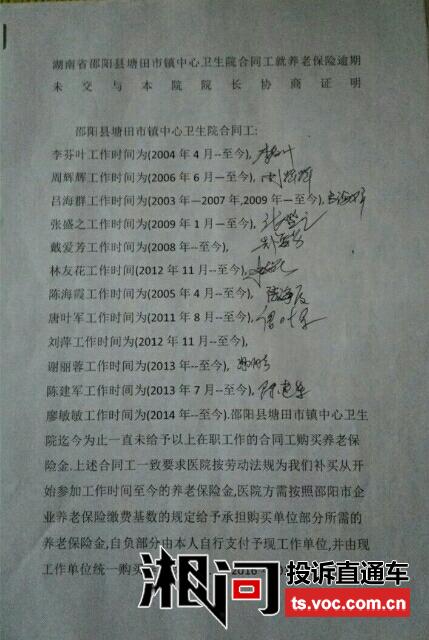 湖南省邵阳县塘田市镇中心卫生院合同工就养老保险逾期
未交与本院院长协商证明
邵阳县塘田市镇中心卫生院合同工:
李芬叶工作时间为(2004年4月--至今),
周辉辉工作时间为(2006年6月—至今),
吕海群工作时间为(2003年—2007年,2009年—至今),
张盛之工作时间为(2009年1月—至今),
戴爱芳工作时间为(2008年--至今),
林友花工作时间(2012年11月--至今),
陈海霞工作时间为(2005年4月--至今),
唐叶军工作时间为(2011年8月--至今),
刘萍工作时间为(2012年11月--至今),
谢丽蓉工作时间为(2013年--至今),
陈建军工作时间为(2013年7月--至今),
廖敏敏工作时间为(2014年--至今).邵阳县塘田市镇中心卫生
院迄今为止一直未给予以上在职工作的合同工购买养老保
险金.上述合同工一致要求医院按劳动法规为我们补买从开
始参加工作时间至今的养老保险金,医院方需按照邵阳市企
业养老保险缴费基数的规定给予承担购买单位部分所需的
养老保险金,自负部分由本人自行支付予现工作单位,并由现
工作单位统一购买
2016
湘问
投诉直通车
ts.voc.com.cn